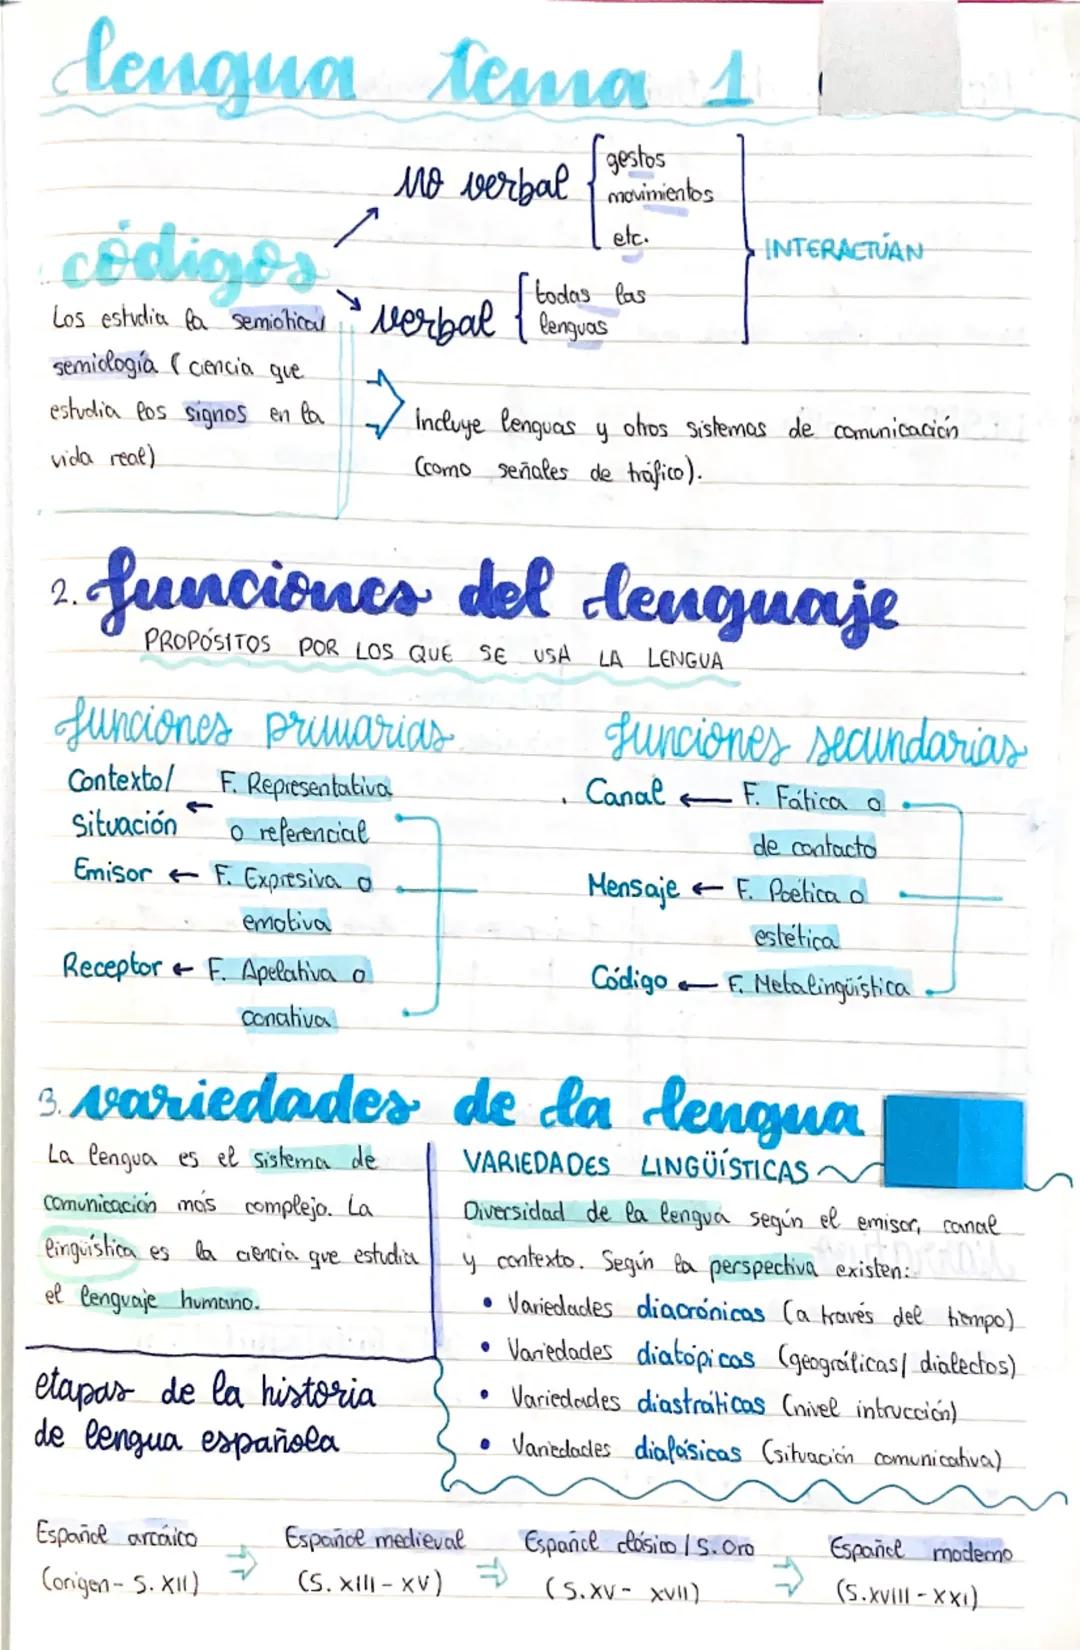 lengua tema 1
no verbal
gestos
movimientos
etc.
INTERACTÚAN
códigos
verbal
todas las
lenguas
Los estudia la semiótica/
semiología (ciencia que
estudia los signos en la
vida real)
Incluye lenguas y otros sistemas de comunicación
(como señales de tráfico).
2. funciones del lenguaje
PROPÓSITOS POR LOS QUE SE USA LA LENGUA
funciones primarias
Contexto/ ← F. Representativa
Situación o referencial
Emisor ← F. Expresiva o
emotiva
Receptor ← F. Apelativa o
conativa
funciones secundarias
Canal ← F. Fática o
de contacto
Mensaje ← F. Poética o
estética
Código ← F. Metalingüística
3. variedades de la lengua
La lengua es el sistema de
comunicación más complejo. La
lingüística es la ciencia que estudia
el lenguaje humano.
VARIEDADES LINGÜÍSTICAS
Diversidad de la lengua según el emisor, canal
y contexto. Según la perspectiva existen:
• Variedades diacrónicas (a través del tiempo)
• Variedades diatópicas (geográficas/ dialectos)
• Variedades diastráticas (nivel intrucción)
• Variedades diafásicas (situación comunicativa)
etapas de la historia
de lengua española
Español arcáico
(origen - S. XII)
Español medieval
(S. XIII - XV)
Español clásico / S. Oro
(S. XV - XVII)
Español moderno
(S. XVIII - XXI)